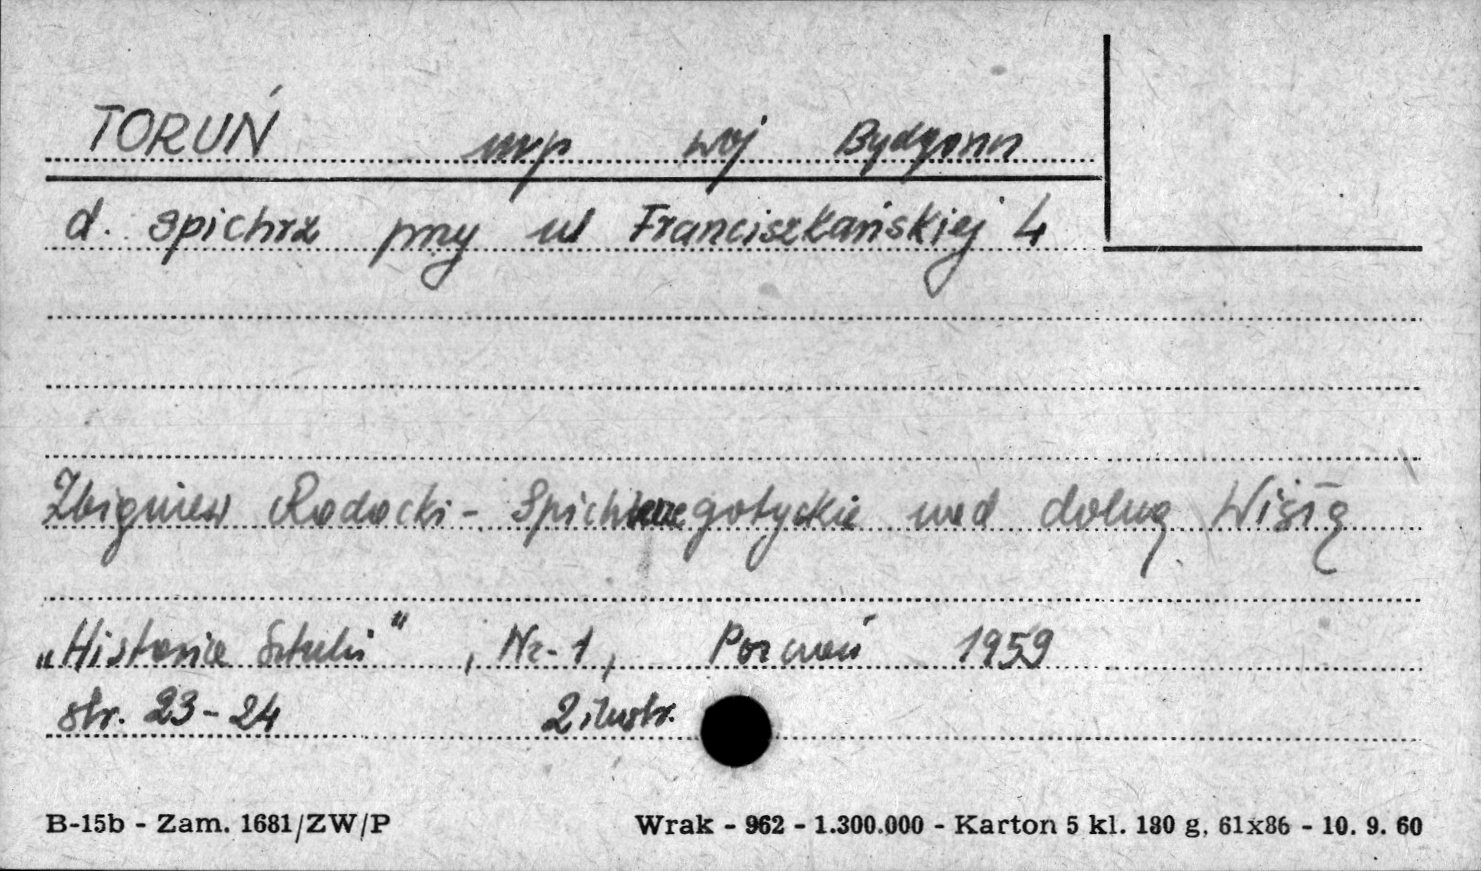 TORUŃ mrp woj Bydgoszcz
d. spichrz przy ul Franciszkańskiej 4
Zbigniew Radacki - Spichlerze gotyckie nad dolną Wisłą
„Historia Sztuki" , Nr-1, Poznań 1959
str. 23-24 2 ilustr.
B-15b - Zam. 1681/ZW/P Wrak - 962 - 1.300.000 - Karton 5 kl. 180 g, 61x86 - 10. 9. 60